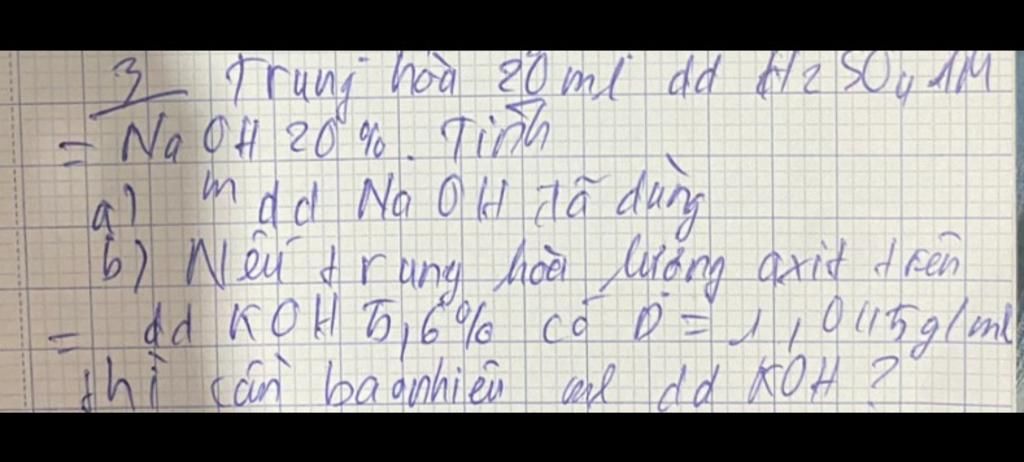 3 Trung hoà 20 ml dd H2SO4 1M
= NaOH 20%. Tính
a) m dd NaOH đã dùng
b) Nếu trung hoà lượng axit trên
= dd KOH 5,6% có D = 1,045g/ml
thì cần baonhiêu ml dd KOH ?